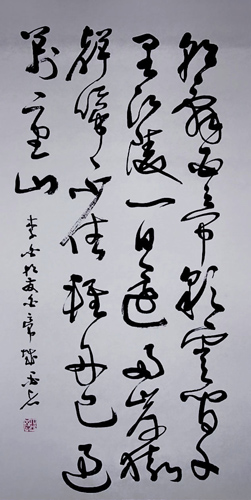 朝辭白帝彩雲間千
里江陵一日還兩岸猿
聲啼不住輕舟已過
萬重山
李白早發白帝城